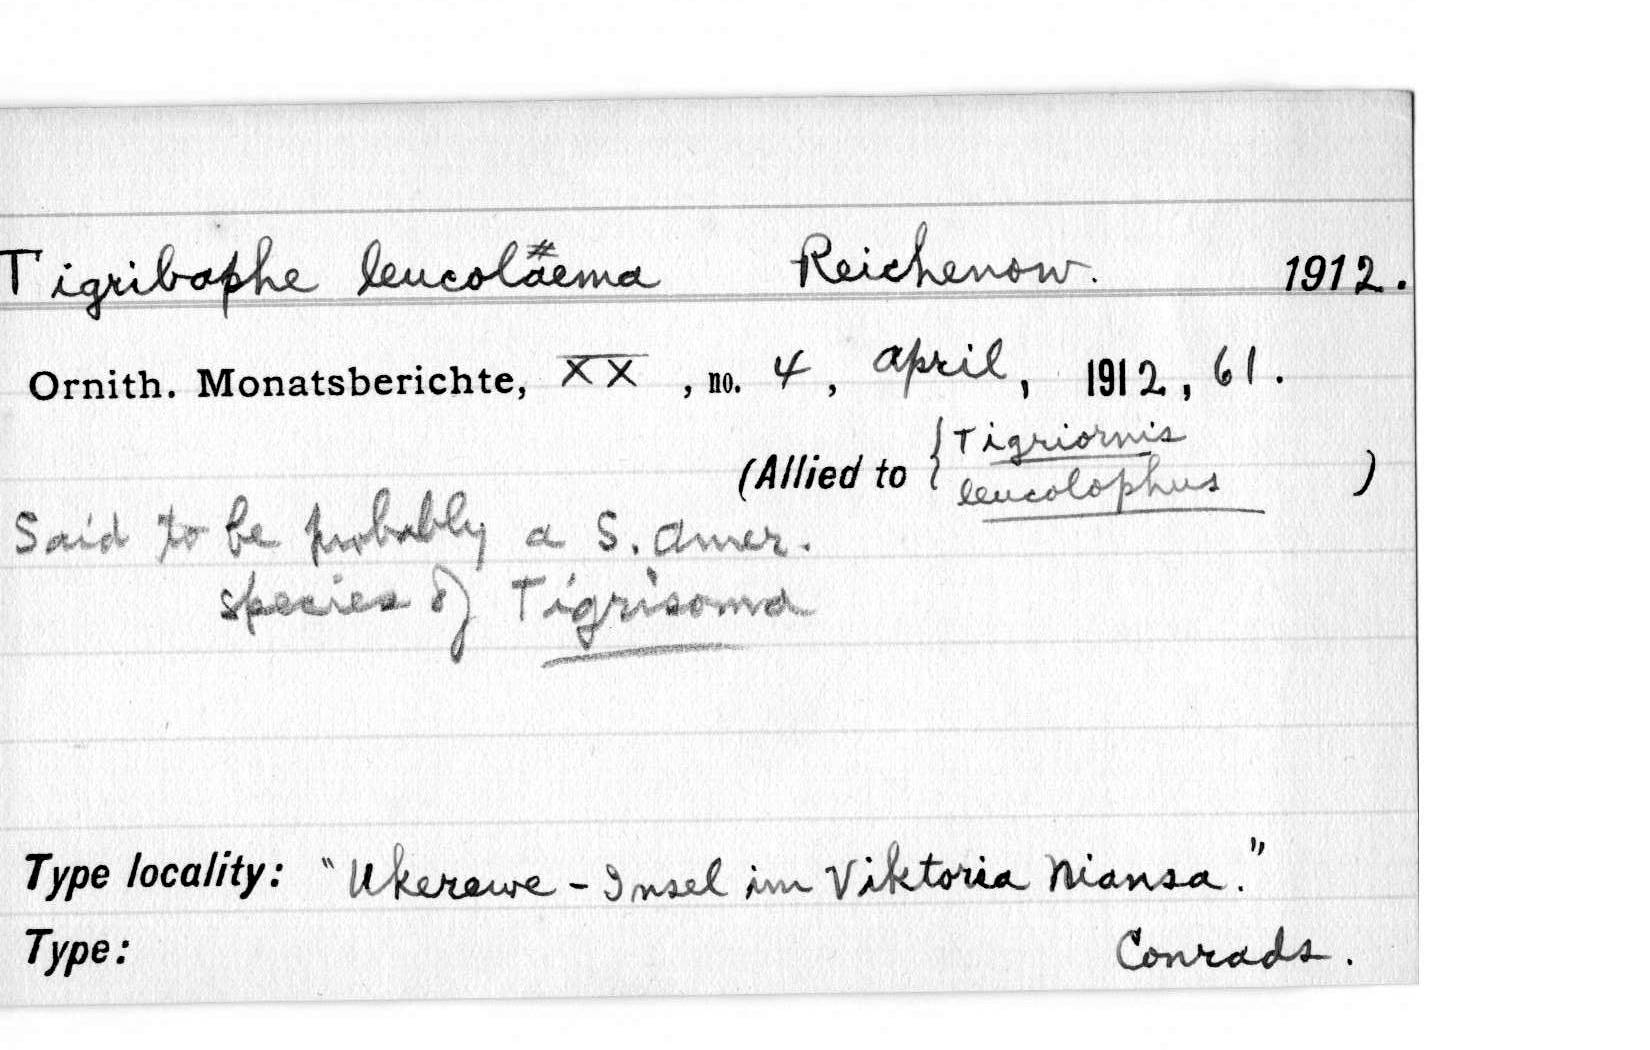 Tigribaphe leucoläema Reichenow. 1912.
Ornith. Monatsberichte, XX, no. 4, April, 1912, 61.
(Allied to { Tigriornis
leucolophus )
Said to be probably a S. Amer.
species of Tigrisoma
Type locality: "Ukerewe-Insel im Viktoria Niansa."
Type: Conrads.